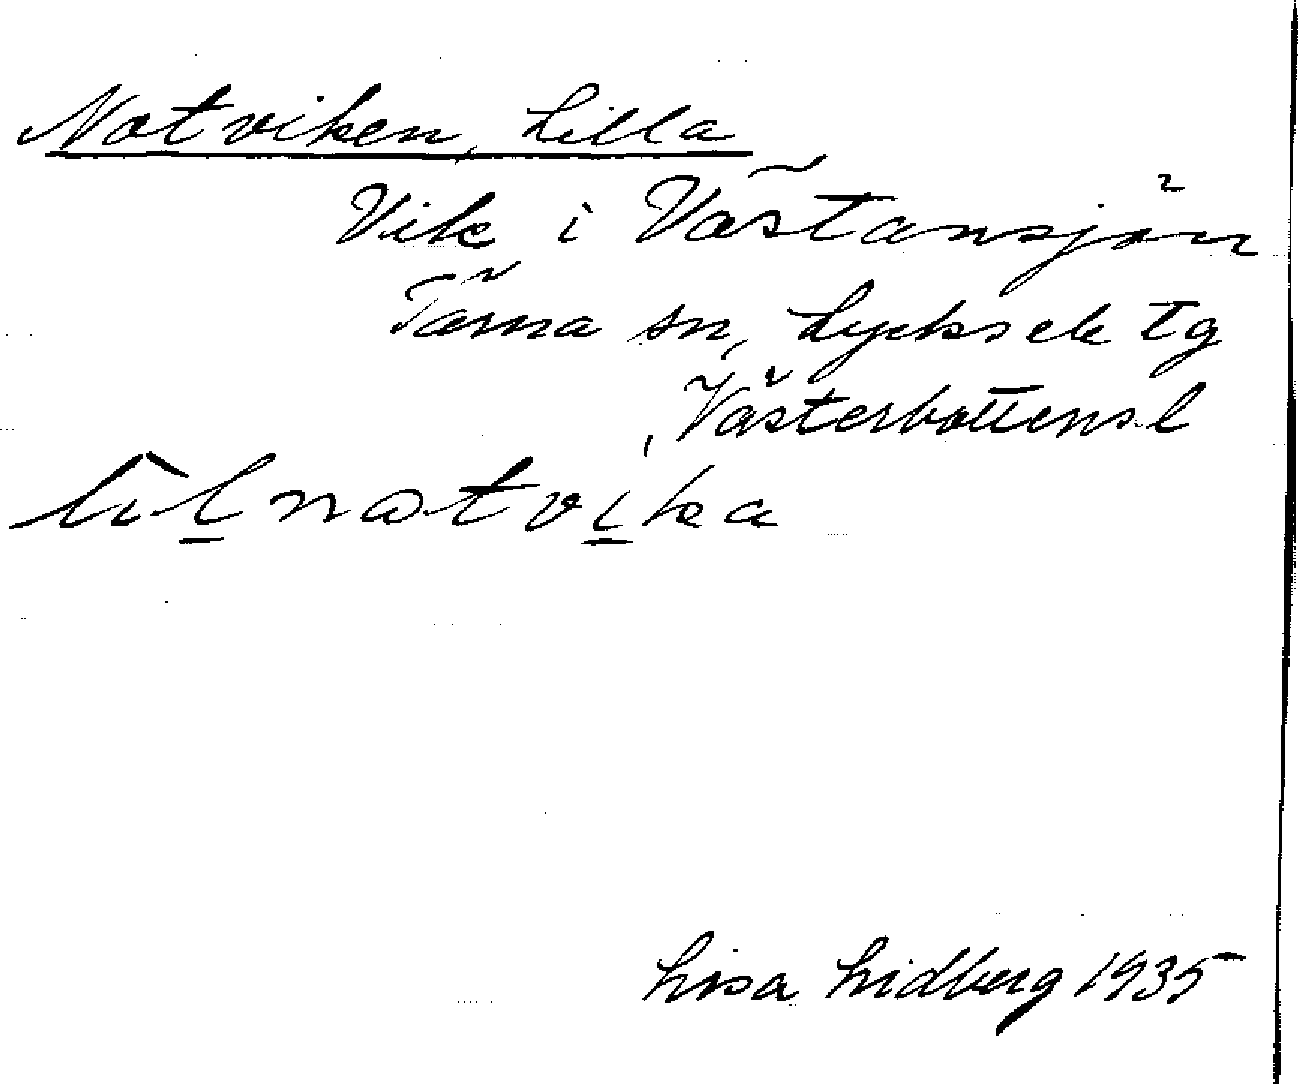 Notviken, Lilla
Vik i Västansjön
Tärna sn, Lycksele tg
Västerbottens l
lìlnotvika
Lisa Lidberg 1935